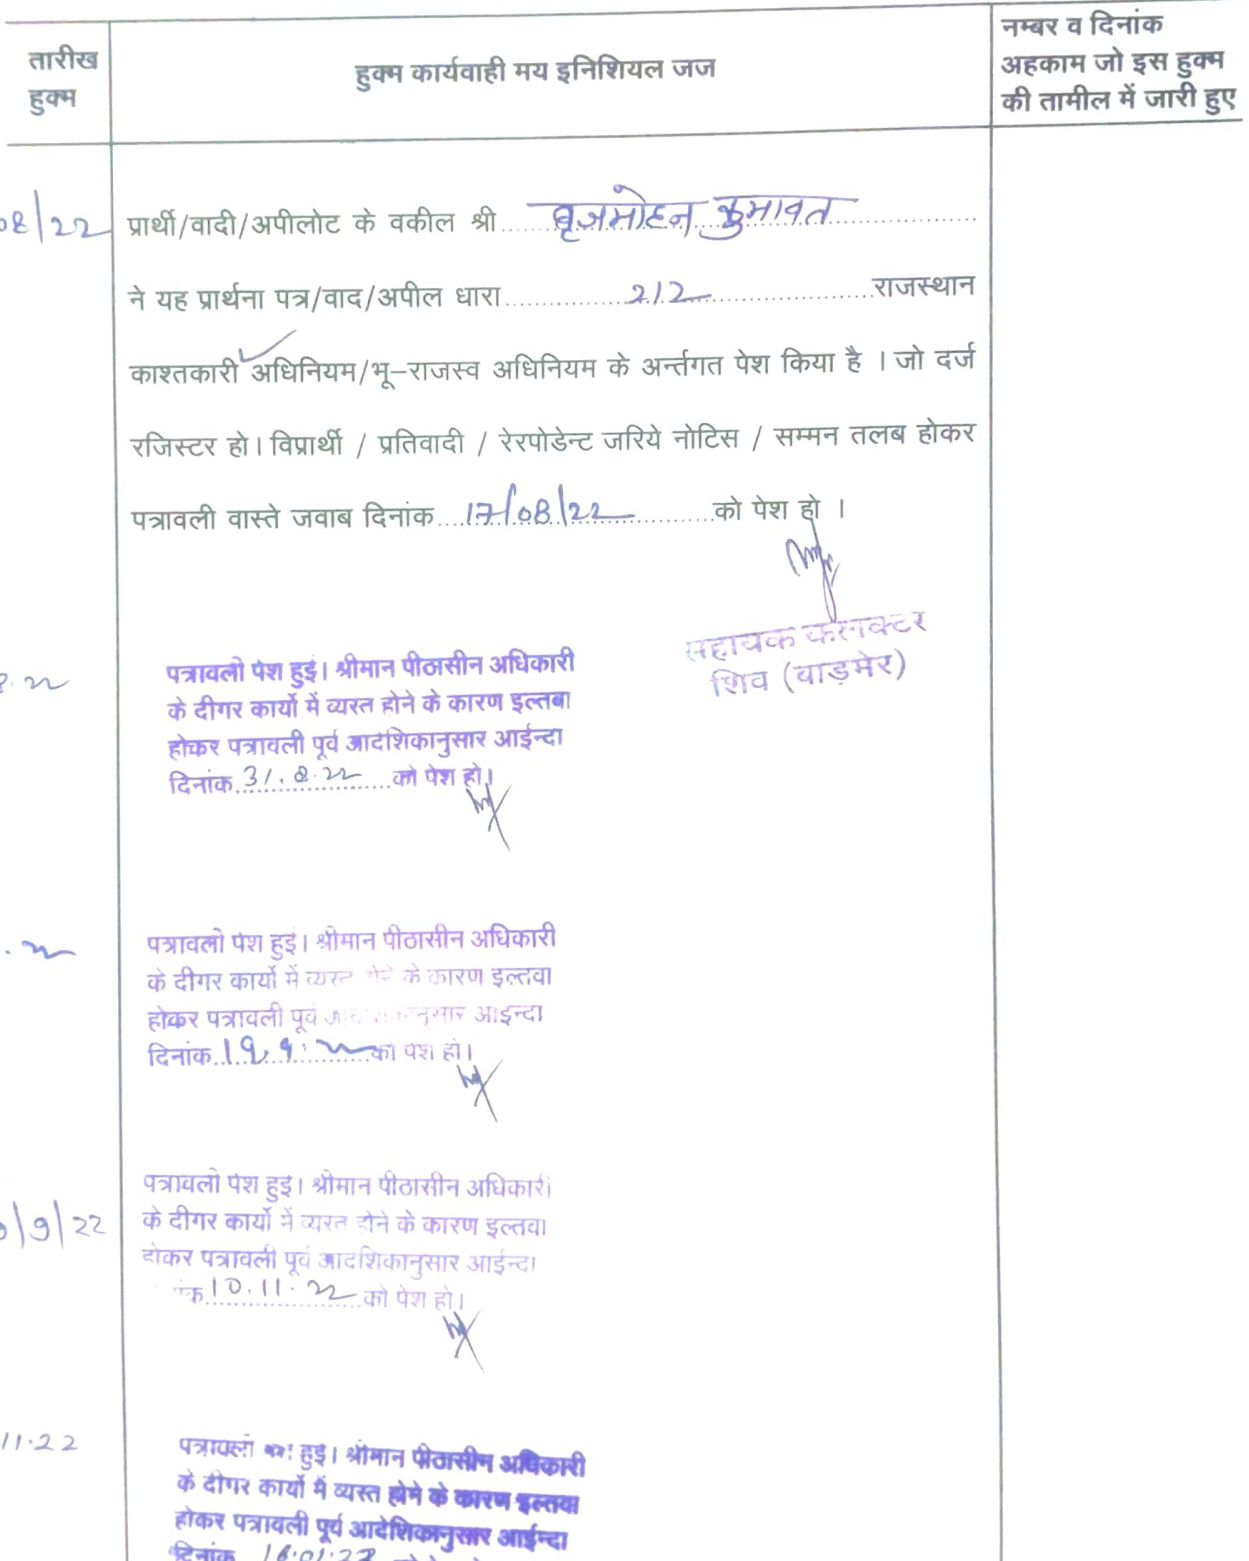 तारीख हुक्म
हुक्म कार्यवाही मय इनिशियल जज
नम्बर व दिनांक
अहकाम जो इस हुक्म
की तामील में जारी हुए
08/22
प्रार्थी/वादी/अपीलोट के वकील श्री बृजमोहन कुमावत
ने यह प्रार्थना पत्र/वाद/अपील धारा 212 राजस्थान
काश्तकारी अधिनियम/भू–राजस्व अधिनियम के अर्न्तगत पेश किया है । जो दर्ज
रजिस्टर हो। विप्रार्थी / प्रतिवादी / रेरपोडेन्ट जरिये नोटिस / सम्मन तलब होकर
पत्रावली वास्ते जवाब दिनांक 17/08/22 को पेश हो ।
सहायक कलक्टर
शिव (बाड़मेर)
पत्रावली पेश हुई। श्रीमान पीठासीन अधिकारी
के दीगर कार्यो में व्यस्त होने के कारण इल्तबा
होकर पत्रावली पूर्व आदेशिकानुसार आईन्दा
दिनांक 31.8.22 को पेश हो।
पत्रावली पेश हुई। श्रीमान पीठासीन अधिकारी
के दीगर कार्यो में व्यस्त होने के कारण इल्तवा
होकर पत्रावली पूर्व आइन्दा
दिनांक 19.9.22 को पेश हो।
/9/22
पत्रावली पेश हुई। श्रीमान पीठासीन अधिकारी
के दीगर कार्यो में व्यस्त होने के कारण इल्तवा
होकर पत्रावली पूर्व आदेशिकानुसार आईन्दा
10.11.22 को पेश हो।
11.22
पत्रावली हुई। श्रीमान पीठासीन अधिकारी
के दीगर कार्यो में व्यस्त होने के कारण इल्तवा
होकर पत्रावली पूर्व आदेशिकानुसार आईन्दा
दिनांक